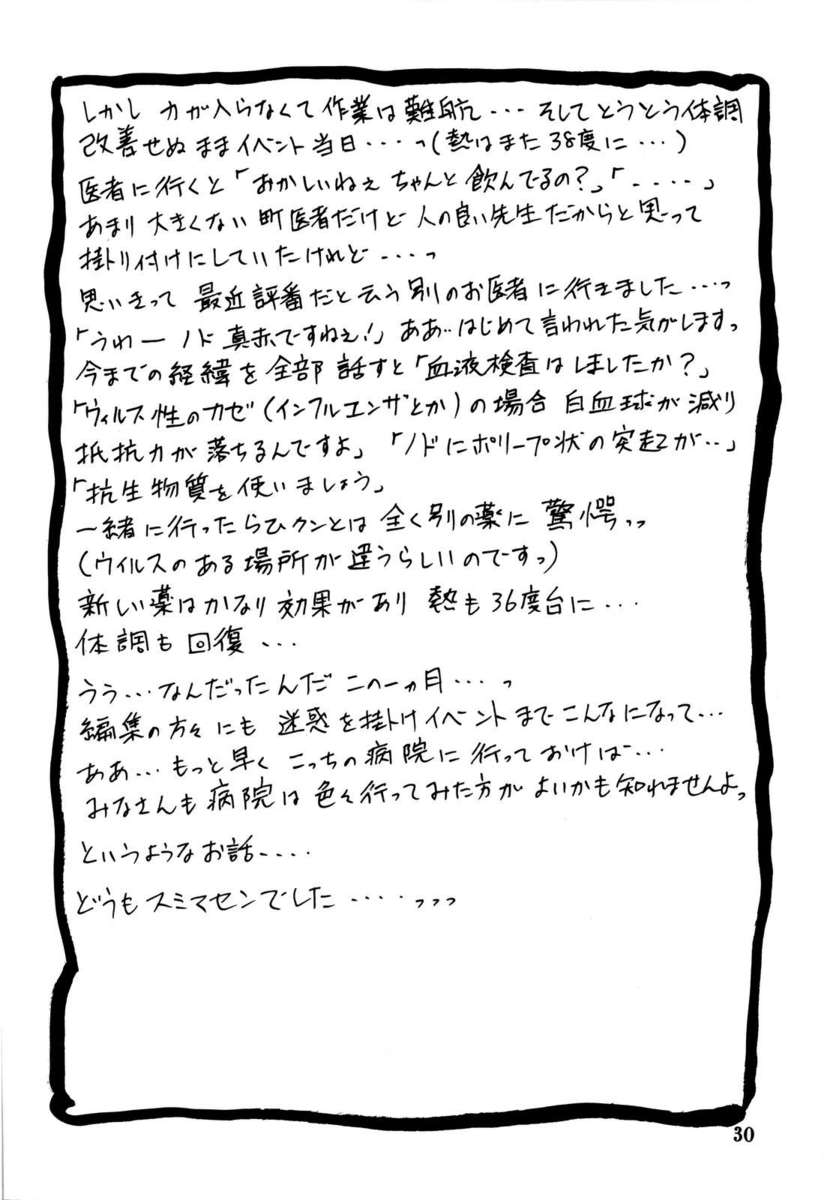 しかし 力が入らなくて作業は難航・・・ そしてとうとう体調
改善せぬままイベント当日・・・・っ(熱はまた38度に・・・)
医者に行くと「おかしいねぇ ちゃんと飲んでるの?」「・・・・」
あまり大きくない町医者だけど 人の良い先生だからと思って
掛トリ付けにしていたけれど・・・・っ
思いきって 最近評番だと云う別のお医者に行きました・・・っ
「うわー ノド真赤ですねぇ!」ああ‥はじめて言われた気がしますっ
今までの経緯を全部話すと「血液検査はしましたか?」
「ウィルス性のカゼ(インフルエンザとか)の場合 白血球が減り
抵抗力が落ちるんですよ」「ノドにポリープ状の突起が‥」
「抗生物質を使いましょう」
一緒に行ったらひクンとは 全く別の薬に 驚愕っっ
(ウイルスのある場所が違うらしいのですっ)
新しい薬はかなり効果があり 熱も36度台に・・・
体調も回復・・・
うぅ・・・なんだったんだ この一ヵ月・・・・っ
編集の方々にも 迷惑を掛けイベントまでこんなになって・・・
ああ・・・もっと早く こっちの病院に行っておけば・・・
みなさんも病院は色々行ってみた方が よいかも知れませんよっ
というようなお話・・・・
どうもスミマセンでした・・・・っっっ
30